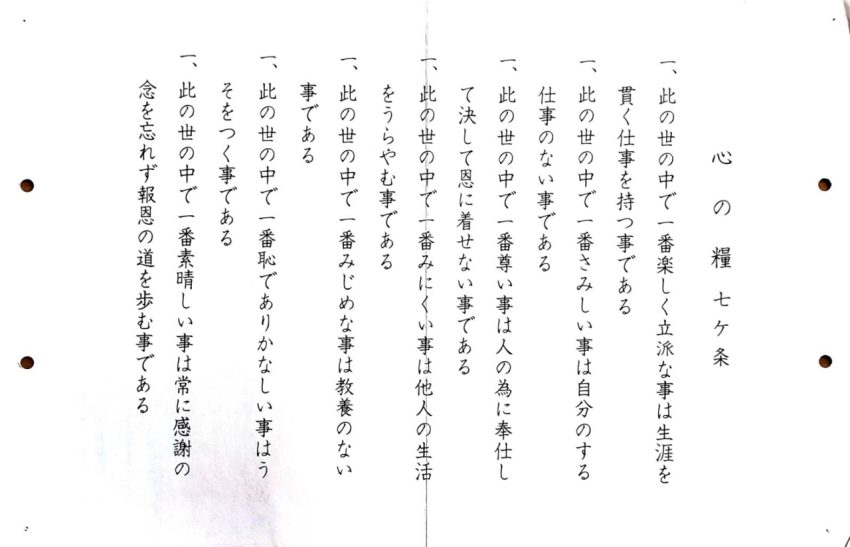 心の糧 七ケ条
一、此の世の中で一番楽しく立派な事は生涯を
貫く仕事を持つ事である
一、此の世の中で一番さみしい事は自分のする
仕事のない事である
一、此の世の中で一番尊い事は人の為に奉仕し
て決して恩に着せない事である
一、此の世の中で一番みにくい事は他人の生活
をうらやむ事である
一、此の世の中で一番みじめな事は教養のない
事である
一、此の世の中で一番恥でありかなしい事はう
そをつく事である
一、此の世の中で一番素晴しい事は常に感謝の
念を忘れず報恩の道を歩む事である